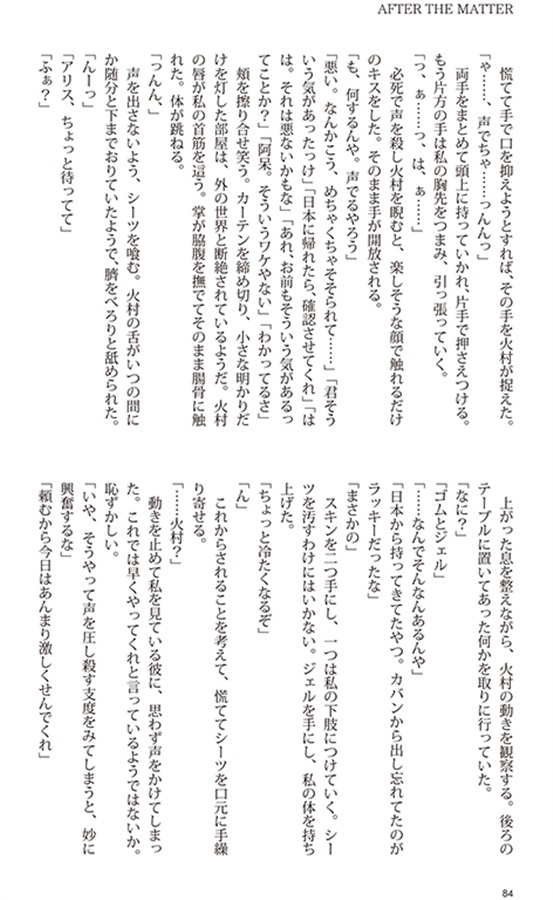 AFTER THE MATTER
慌てて手で口を抑えようとすれば、その手を火村が捉えた。
「ゃ……、声でちゃ……っんんっ」
両手をまとめて頭上に持っていかれ、片手で押さえつける。
もう片方の手は私の胸先をつまみ、引っ張っていく。
「っ、ぁ……っ、は、ぁ……」
必死で声を殺し火村を睨むと、楽しそうな顔で触れるだけ
のキスをした。そのまま手が開放される。
「も、何するんや。声でるやろう」
「悪い。なんかこう、めちゃくちゃそそられて……」「君そう
いう気があったっけ」「日本に帰れたら、確認させてくれ」「は
は。それは悪ないかもな」「あれ、お前もそういう気があるっ
てことか?」「阿呆。そういうワケやない」「わかってるさ」
頬を擦り合せ笑う。カーテンを締め切り、小さな明かりだ
けを灯した部屋は、外の世界と断絶されているようだ。火村
の唇が私の首筋を這う。掌が脇腹を撫でてそのまま腸骨に触
れた。体が跳ねる。
「っんん、」
声を出さないよう、シーツを喰む。火村の舌がいつの間に
か随分と下までおりていたようで、臍をべろりと舐められた。
「んーっ」
「アリス、ちょっと待ってて」
「ふぁ?」
上がった息を整えながら、火村の動きを観察する。後ろの
テーブルに置いてあった何かを取りに行っていた。
「なに?」
「ゴムとジェル」
「……なんでそんなんあるんや」
「日本から持ってきてたやつ。カバンから出し忘れてたのが
ラッキーだったな」
「まさかの」
スキンを二つ手にし、一つは私の下肢につけていく。シー
ツを汚すわけにはいかない。ジェルを手にし、私の体を持ち
上げた。
「ちょっと冷たくなるぞ」
「ん」
これからされることを考えて、慌ててシーツを口元に手繰
り寄せる。
「……火村?」
動きを止めて私を見ている彼に、思わず声をかけてしまっ
た。これでは早くやってくれと言っているようではないか。
恥ずかしい。
「いや、そうやって声を圧し殺す支度をみてしまうと、妙に
興奮するな」
「頼むから今日はあんまり激しくせんでくれ」
84